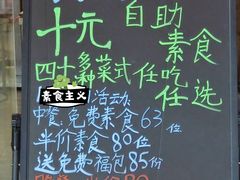 十元 自助素食
四十多种菜式任吃任选
素食主义 活动:
中餐:免费素食63位
半价素食80位
送免费福包85份